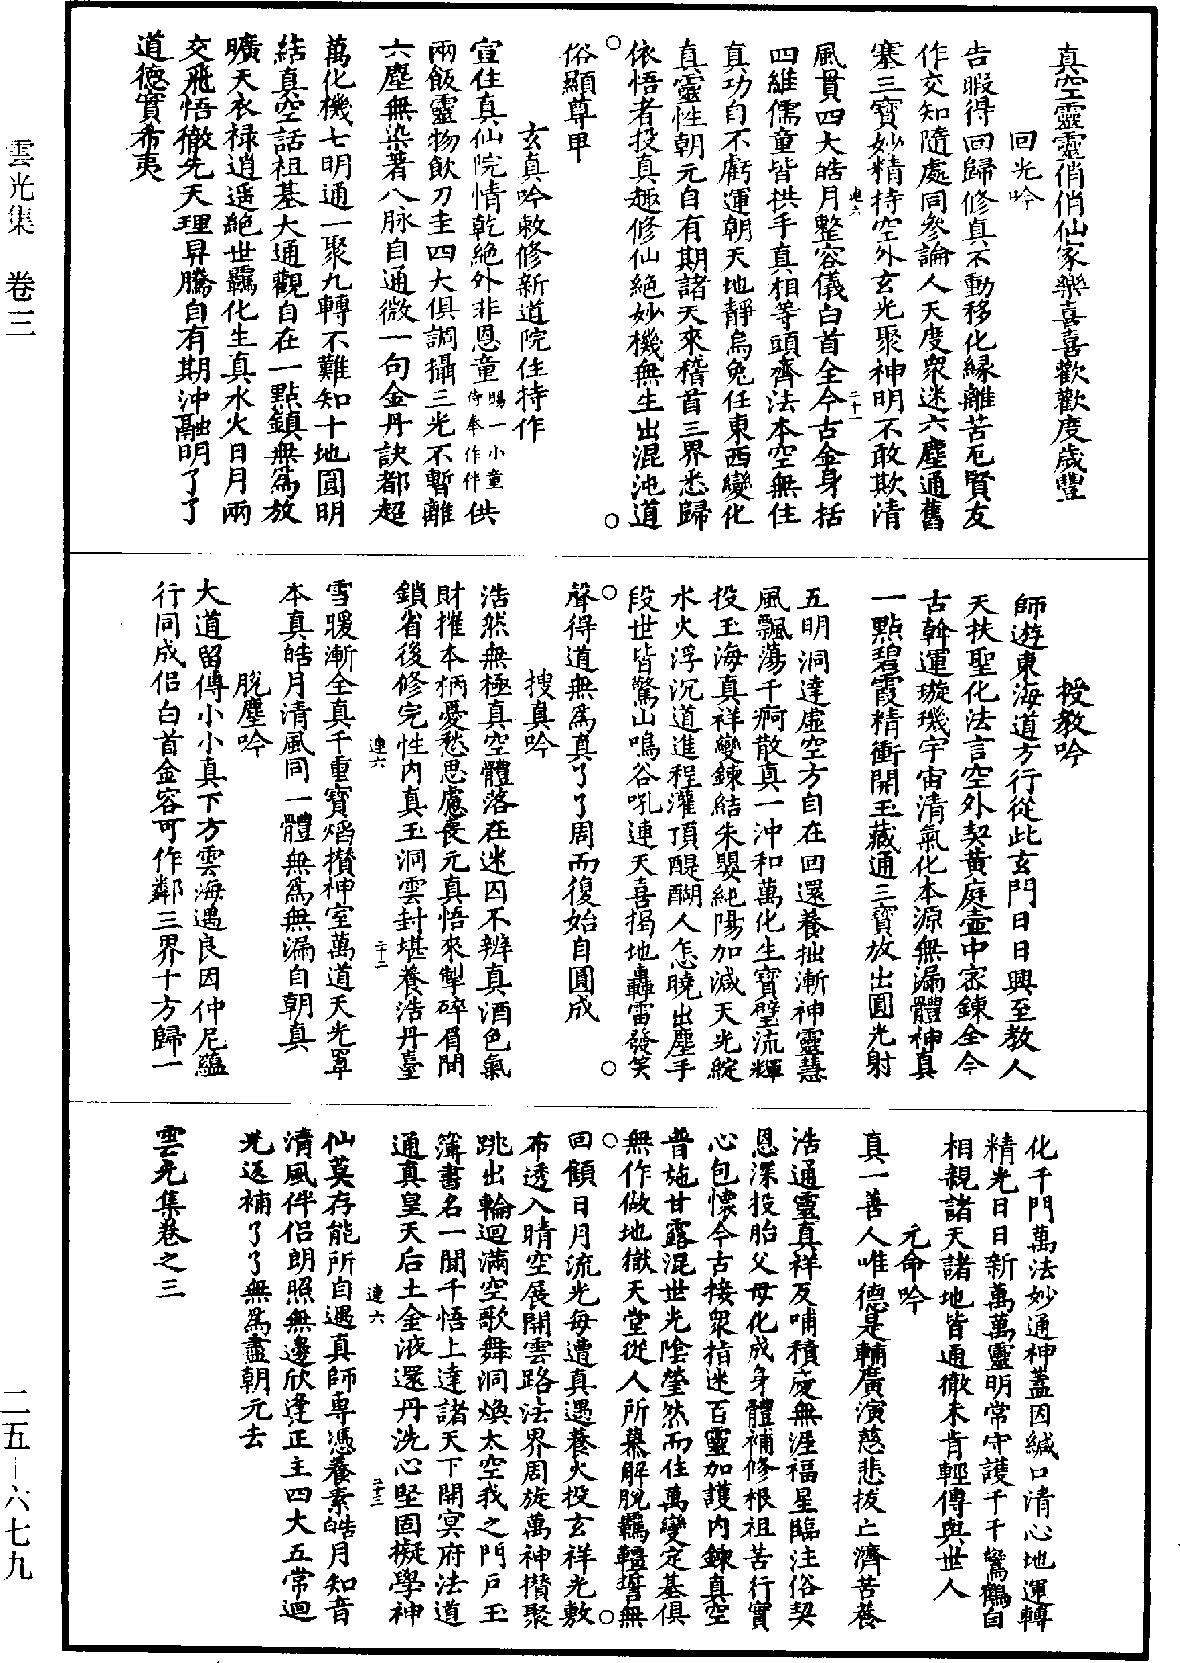 真空靈靈俏俏仙家樂喜喜歡歡度歲豐
回光吟
告暇得回歸修真不動移化緣離苦厄賢友
作交知隨處同參論人天度衆迷六塵通舊
塞三寶妙精持空外玄光聚神明不敢欺清
連六
二十一
風貫四大皓月整容儀白首全今古金身括
四維儒童皆拱手真相等頭齊法本空無住
真功自不虧運朝天地靜烏兔任東西變化
真靈性朝元自有期諸天來稽首三界悉歸
依悟者投真趣修仙絶妙機無生出混沌道
俗顯尊卑
玄真吟敕修新道院住持作
宣住真仙院情乾絶外非恩童賜一小童侍奉作伴供
兩飯靈物飲刀圭四大俱調攝三光不暫離
六塵無染著八脉自通微一句金丹訣都超
萬化機七明通一聚九轉不難知十地圓明
結真空話祖基大通觀自在一點鎮無爲放
曠天衣禄逍遥絶世羈化生真水火日月兩
交飛悟徹先天理昇騰自有期沖融明了了
道德實希夷
授教吟
師遊東海道方行從此玄門日日興至教人
天扶聖化法言空外契黃庭壺中密鍊全今
古斡運璇璣宇宙清氣化本源無漏體神真
一點碧霞精衝開玉藏通三寶放出圓光射
五明洞達虛空方自在回還養拙漸神靈慧
風飄蕩千痾散真一沖和萬化生寶璧流輝
投玉海真祥變鍊結朱嬰純陽加減天光綻
水火浮沉道進程灌頂醍醐人怎曉出塵手
段世皆驚山鳴谷吼連天喜揭地轟雷發笑
聲得道無爲真了了周而復始自圓成
搜真吟
浩然無極真空體落在迷囚不辨真酒色氣
財摧本柄憂愁思慮喪元真悟來掣碎眉間
鎖省後修完性内真玉洞雲封堪養浩丹臺
連六
二十二
雪暖漸全真千重寶熖攢神室萬道天光罩
本真皓月清風同一體無爲無漏自朝真
脫塵吟
大道留傳小小真下方雲海遇良因仲尼蘊
行同成侣白首金容可作鄰三界十方歸一
化千門萬法妙通神蓋因緘口清心地運轉
精光日日新萬萬靈明常守護千千鸞鶴自
相親諸天諸地皆通徹未肯輕傳與世人
元命吟
真一善人唯德是輔廣演慈悲拔亡濟苦養
浩通靈真祥反哺積慶無涯福星臨注俗契
恩深投胎父母化成身體補修根祖苦行實
心包懷今古接衆指迷百靈加護内鍊真空
普施甘露混世光陰瑩然而住萬變定基俱
無作做地獄天堂從人所慕解脫羈韁誓無
回顧日月流光每遭真遇養火投玄祥光敷
布透入晴空展開雲路法界周旋萬神攢聚
跳出輪迴滿空歌舞洞煥太空我之門戶玉
簿書名一聞千悟上達諸天下開冥府法道
通真皇天后土金液還丹洗心堅固擬學神
連六
二十三
仙莫存能所自遇真師專憑養素皓月知音
清風伴侣朗照無邊欣逢正主四大五常迴
光返補了了無爲盡朝元去
雲光集卷之三
雲光集　卷三
二五－六七九